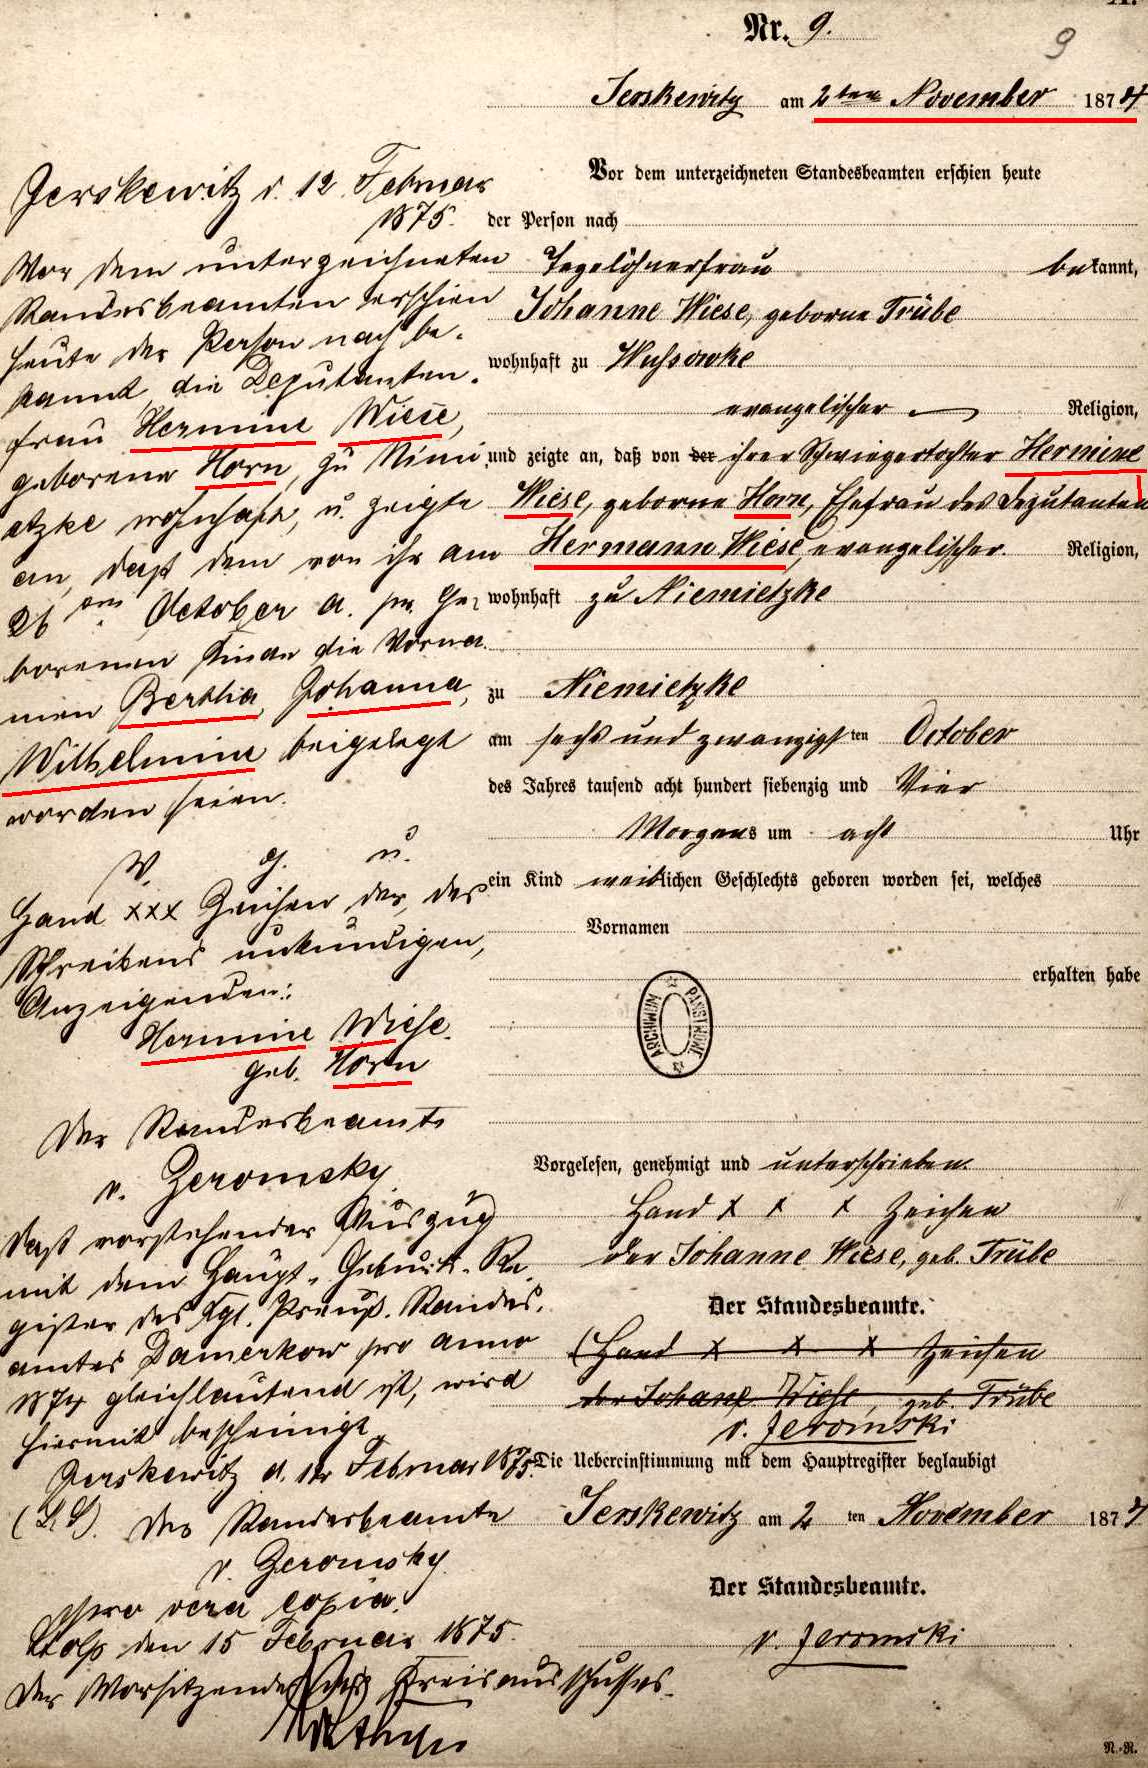 Nr. 9.
9
Jerskewitz am 2ten November 1874
Vor dem unterzeichneten Standesbeamten erschien heute
der Person nach
Tagelöhnerfrau bekannt,
Johanne Wiese, geborne Trübe
wohnhaft zu Wussowke
evangelischer Religion,
und zeigte an, daß von der ihrer Schwiegertochter Hermine
Wiese, geborne Horn, Ehefrau des Deputanten
Hermann Wiese, evangelischer Religion,
wohnhaft zu Niemietzke
zu Niemietzke
am sechs und zwanzigsten October
des Jahres tausend acht hundert siebenzig und Vier
Morgens um acht Uhr
ein Kind weiblichen Geschlechts geboren worden sei, welches
Vornamen
erhalten habe
ARCHIWUM PAŃSTWOWE
Vorgelesen, genehmigt und unterschrieben.
Hand x x x Zeichen
der Johanne Wiese, geb. Trübe
Der Standesbeamte.
(Hand x x x Zeichen
der Johane Wiese, geb. Trübe
v. Jeromski
Die Uebereinstimmung mit dem Hauptregister beglaubigt
Jerskewitz am 2 ten November 1874
Der Standesbeamte.
v. Jeromski
N.-R.
Jerskewitz d. 12 Februar
1875.
Vor dem unterzeichneten
Standesbeamten erschien
heute der Person nach be-
kannt, die Deputanten-
frau Hermine Wiese,
geborene Horn, zu Nimi
etzke wohnhaft, u. zeigte
an, daß dem von ihr am
26 ten October a. pr. ge-
borenen Kinde die Vorna-
men Bertha, Johanna,
Wilhelmine beigelegt
worden seien.
V. g. u.
Hand xxx Zeichen der, des
Schreibens unkundigen,
Anzeigenden:
Hermine Wiese.
geb. Horn
Der Standesbeamte
v. Zeromsky
Daß vorstehender Auszug
mit dem Haupt-Geburts-Re-
gister des Kgl. Preuß. Standes-
amtes Damerkow pro anno
1874 gleichlautend ist, wird
hiermit bescheinigt
Jerskewitz d. 12 Februar 1875
(L. S). Der Standesbeamte
v. Zeromsky
pro vera copia.
Stolp den 15 Februar 1875.
Der Vorsitzende des Kreisausschusses.